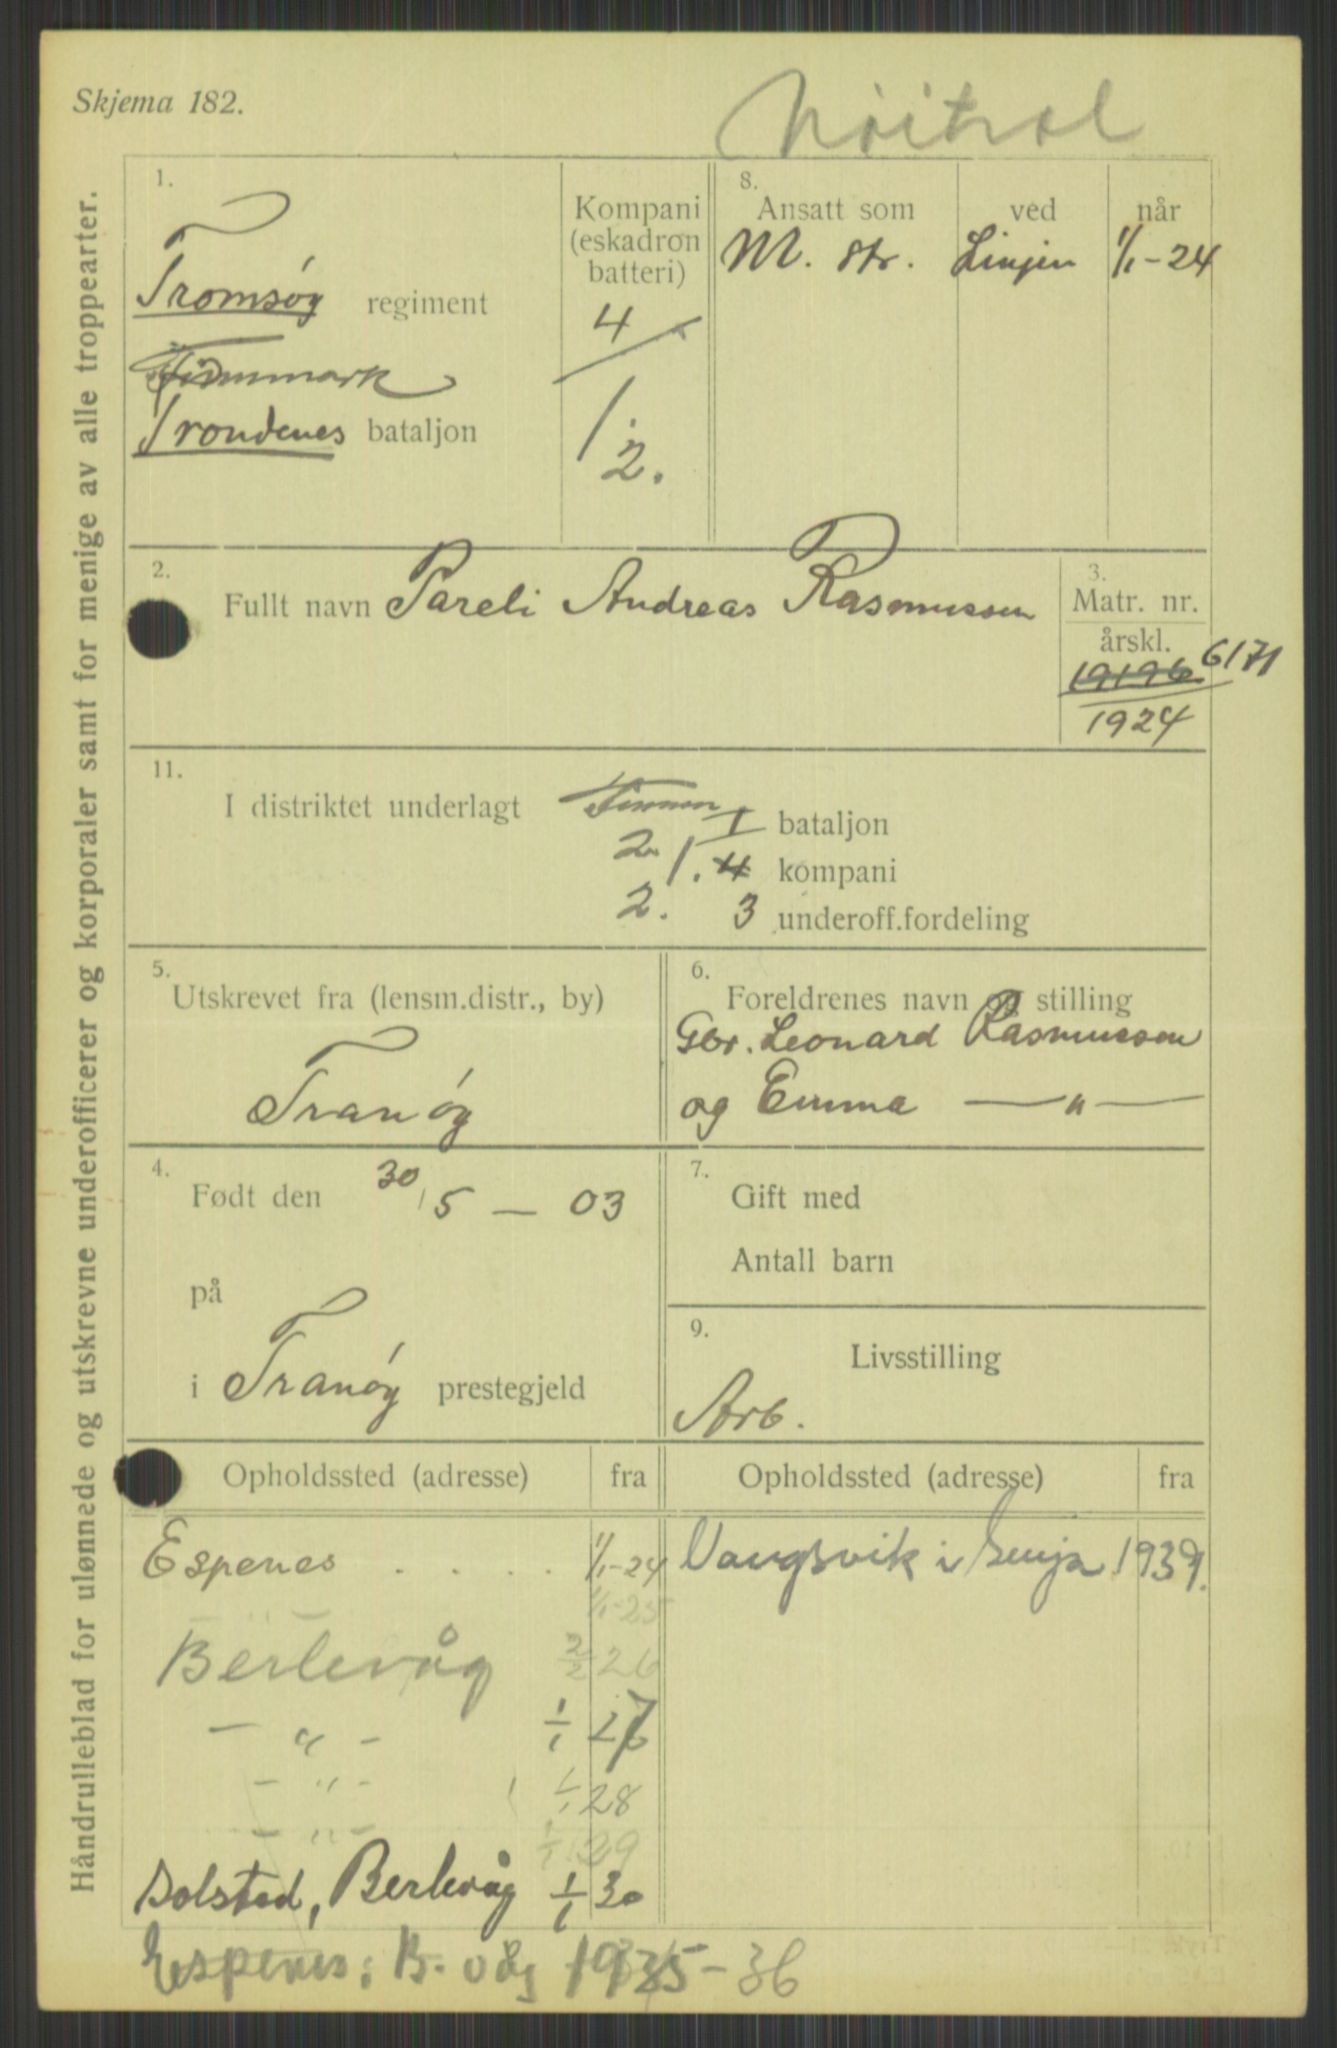 Skjema 182.
Nøitral
Håndrulleblad for ulønnede og utskrevne underofficerer og korporaler samt for menige av alle troppearter.
1.
Tromsøy regiment
Finnmark
Trondenes bataljon
Kompani
(eskadron
batteri)
4
1.
2.
8.
Ansatt som ved når
M. str. Linjen 1/1-24
2.
Fullt navn Pareli Andreas Rasmussen
3.
Matr. nr.
årskl.
19196 6171
1924
11.
I distriktet underlagt Finnm I bataljon
2. 1. 4 kompani
2. 3 underoff.fordeling
5.
Utskrevet fra (lensm.distr., by)
Tranøy
6.
Foreldrenes navn og stilling
Gbr. Leonard Rasmussen
og Emma — „ —
4.
Født den 30/5 — 03
på
i Tranøy prestegjeld
7.
Gift med
Antall barn
9.
Livsstilling
Arb.
Opholdssted (adresse) fra
Espenes . . . . 1/1-24
1/1-25
Berlevåg 2/2 26
— „ — 1/1 27
— „ — 1/1 28
— „ — 1/1 29
Solstad, Berlevåg 1/1 30
Espenes: B. våg 1935-36
Opholdssted (adresse) fra
Vangsvik i Senja 1939.